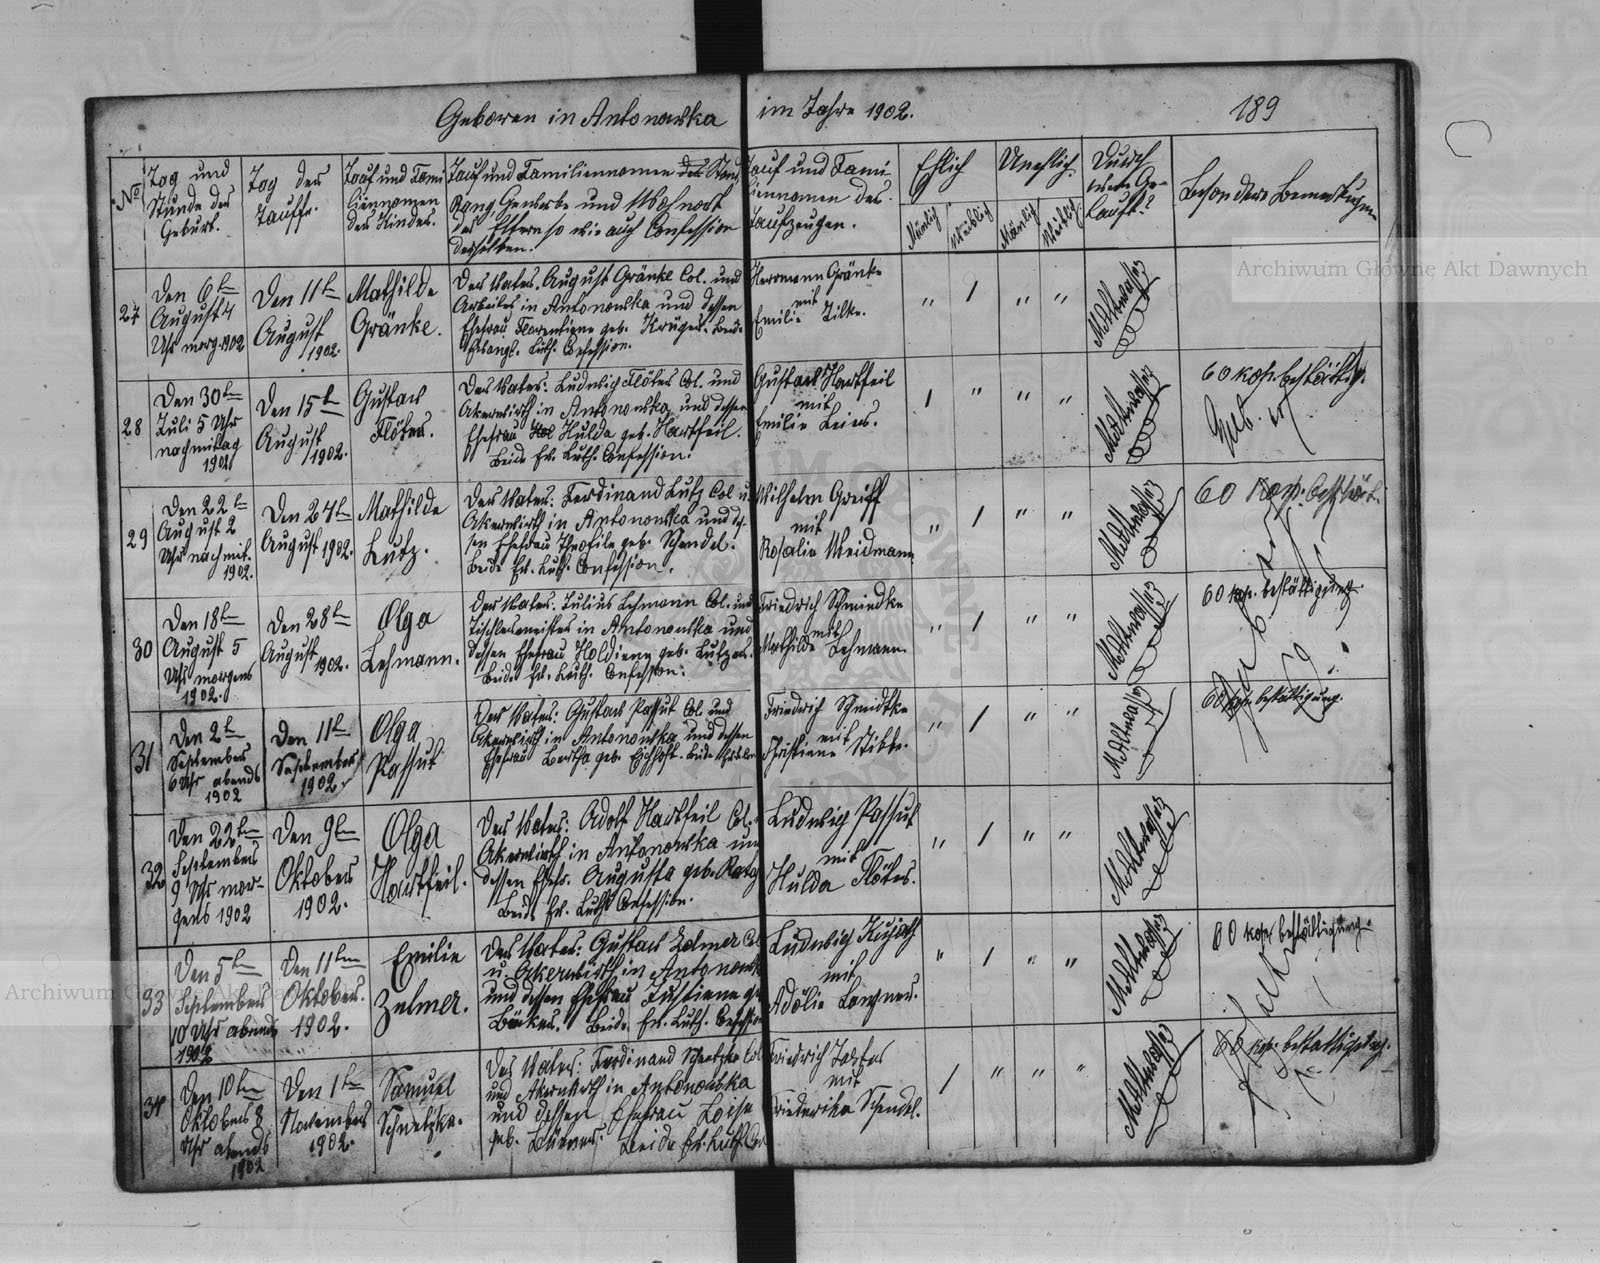 Geboren in Antonowka im Jahre 1902.
189
No
Tag und
Stunde der
Geburt.
Tag der
Tauffe.
Tauf und Fami
liennamen
des Kindes.
Tauf und Familiennamen des Stand
Rang Gewerbe und Wohnort
der Eltern so wie auch Confession
derselben.
Tauf und Fami-
liennamen der
Taufzeugen.
Ehlich
Unehlich
Mänlich
Weiblich
Mänlich
Weiblich
Durch
wem Ge-
tauft?
Besondere Bemerkugen
27
Den 6ten
August 4
Uhr morg. 1902
Den 11ten
August
1902.
Mathilde
Gränke.
Der Vater. August Gränke Col. und
Arbeiter in Antonowka und dessen
Ehefrau Florentiene geb. Krüger. Beide
Evangl. Luth. Confession.
Herrmann Gränke
mit
Emilie Tilke.
" / " "
28
Den 30ten
Juli 5 Uhr
nachmitag
1902.
Den 15ten
August
1902.
Gustav
Flöter.
Der Vater: Ludwig Flöter Col. und
Akerwirth in Antonowka und dessen
Ehefrau Hulda geb. Hartfeil.
Beide Ev. Luth. Confession.
Gustav Hartfeil
mit
Emilie Leier.
/ " " "
60 kop. bestättig.
29
Den 22ten
August 2
Uhr nachmit.
1902.
Den 24ten
August 1902.
Mathilde
Lutz.
Der Vater: Ferdinand Lutz Col u.
Akerwirth in Antonowka und des-
sen Ehefrau Theofile geb. Schendel.
Beide Ev. Luth. Confession.
Wilhelm Greiff
mit
Rosalie Weidmann
" / " "
60 kop. bestät.
30
Den 18ten
August 5
Uhr morgens
1902.
Den 28ten
August 1902.
Olga
Lehmann.
Der Vater. Julius Lehmann Col. und
Tischlermeister in Antonowka und
dessen Ehefrau Holdiene geb.
Beide Ev. Luth. Confession.
Friedrich Schmiedke
mit
Mathilde Lehmann.
" / " "
60 kop. bestättigung
31
Den 2ten
September
6 Uhr abends
1902
Den 11ten
September
1902.
Olga
Passut
Der Vater: Gustav Passut Col. und
Akerwirth in Antonowka und dessen
Ehefrau Bertha geb. Eichhoft. Beide
Friedrich Schmidtke
mit
Christiene Stibbe.
" / " "
60 kop. bestättigung.
32
Den 22ten
September
9 Uhr mor-
gens 1902
Den 9ten
Oktober
1902.
Olga
Hartfeil.
Der Vater: Adolf Hartfeil Col.
Akerwirth in Antonowka und
dessen Ehefr. Augusta geb.
Beide Ev. Luth Confession.
Ludwig Passut
mit
Hulda Flöter.
" / " "
33
Den 5ten
September
10 Uhr abends
1902
Den 11ten
Oktober.
1902.
Emilie
Zelmer.
Der Vater: Gustav Zelmer Col
u. Akerwirth in Antonowka
und dessen Ehefrau Justiene ge
Bäker. Beide Ev. Luth. Confession
Ludwig Kujath
mit
Adolie Langner.
" / " "
60 kop bestättigung.
34
Den 10ten
Oktober 8
Uhr abends
1902
Den 1ten
November
1902.
Samuel
Schnetzke.
Der Vater: Ferdinand Schnetzke Col
und Akerwirth in Antonowka
und dessen Ehefrau Loise
geb. Beide Ev. Luth Con
Friedrich
mit
Friederike Schendel.
/ " " "
60 kop. bestättigung.
Archiwum Główne Akt Dawnych
Archiwum Główne Akt Dawnych